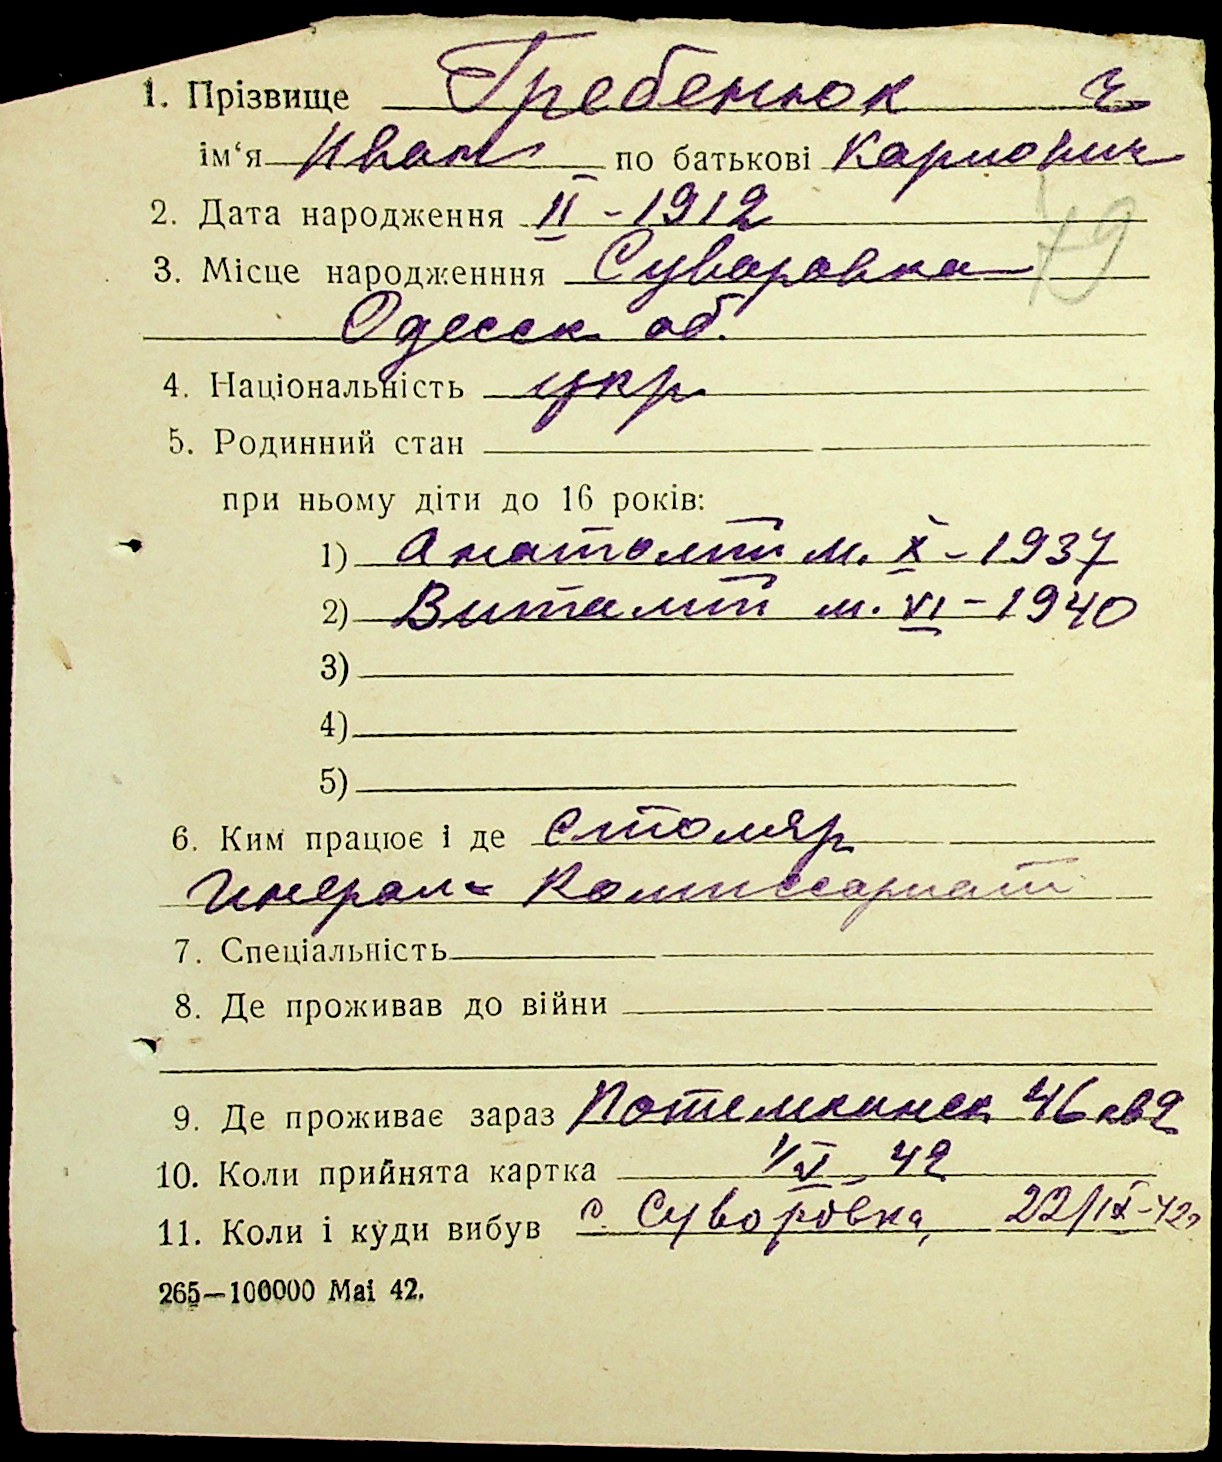 1. Прізвище Гребенюк ч
ім‘я Иван по батькові Карпович
2. Дата народження II - 1912
79
3. Місце народженння Суваровка
Одесск об.
4. Національність укр
5. Родинний стан
при ньому діти до 16 років:
1) Анатолий м. X - 1937
2) Виталий м. VI - 1940
3)
4)
5)
6. Ким працює і де Столяр
Комиссариат
7. Спеціальність
8. Де проживав до війни
9. Де проживає зараз Потемкинск 46 кв 2
10. Коли прийнята картка 1/V 42
11. Коли і куди вибув с. Суворовка, 22/IX-42г
265—100000 Mai 42.